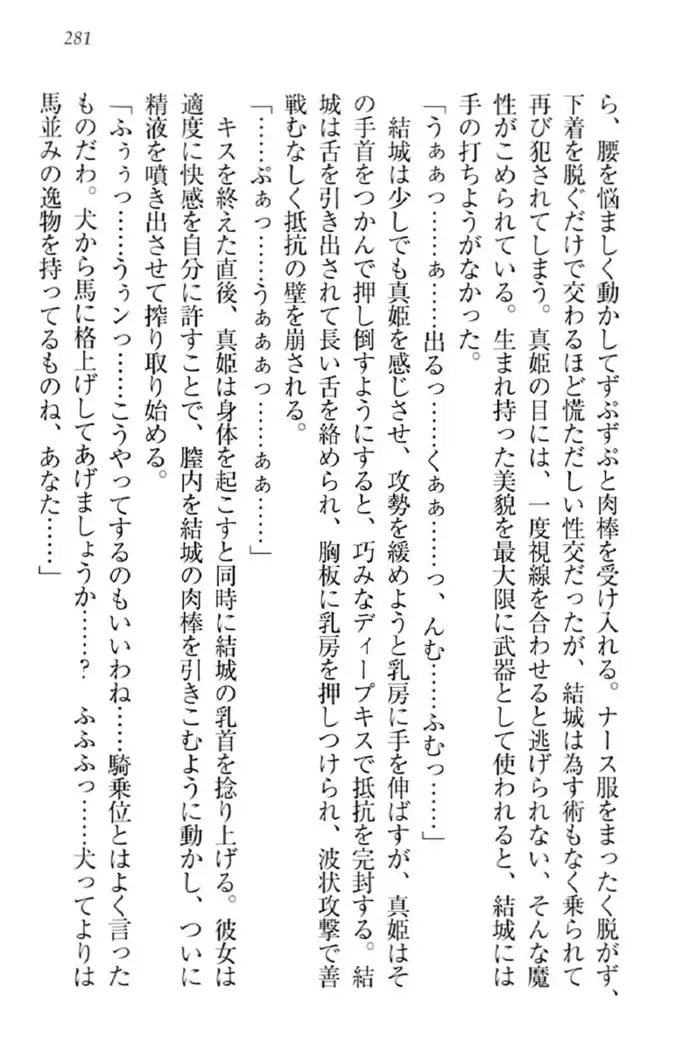 281
ら、腰を悩ましく動かしてずぷずぷと肉棒を受け入れる。ナース服をまったく脱がず、
下着を脱ぐだけで交わるほど慌ただしい性交だったが、結城は為す術もなく乗られて
再び犯されてしまう。真姫の目には、一度視線を合わせると逃げられない、そんな魔
性がこめられている。生まれ持った美貌を最大限に武器として使われると、結城には
手の打ちようがなかった。
「うぁぁっ……ぁ……出るっ……くぁぁ……っ、んむ……ふむっ……」
結城は少しでも真姫を感じさせ、攻勢を緩めようと乳房に手を伸ばすが、真姫はそ
の手首をつかんで押し倒すようにすると、巧みなディープキスで抵抗を完封する。結
城は舌を引き出されて長い舌を絡められ、胸板に乳房を押しつけられ、波状攻撃で善
戦むなしく抵抗の壁を崩される。
「……ぷぁっ……うぁぁぁっ……ぁぁ……」
キスを終えた直後、真姫は身体を起こすと同時に結城の乳首を捻り上げる。彼女は
適度に快感を自分に許すことで、膣内を結城の肉棒を引きこむように動かし、ついに
精液を噴き出させて搾り取り始める。
「ふぅぅっ……うぅンっ……こうやってするのもいいわね……騎乗位とはよく言った
ものだわ。犬から馬に格上げしてあげましょうか……？　ふふふっ……犬ってよりは
馬並みの逸物を持ってるものね、あなた……」